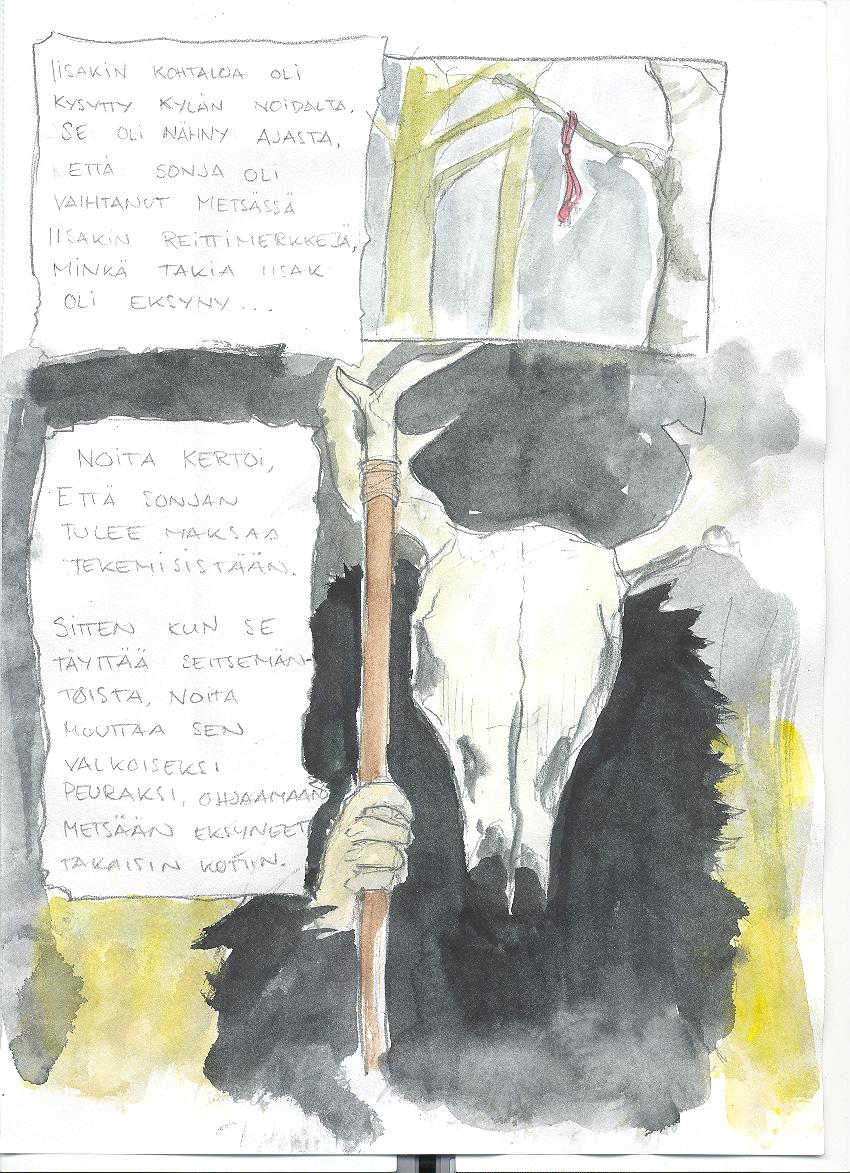 IISAKIN KOHTALOA OLI
KYSYTTY KYLÄN NOIDALTA.
SE OLI NÄHNY AJASTA,
ETTÄ SONJA OLI
VAIHTANUT METSÄSSÄ
IISAKIN REITTIMERKKEJÄ,
MINKÄ TAKIA IISAK
OLI EKSYNY...
NOITA KERTOI,
ETTÄ SONJAN
TULEE MAKSAA
TEKEMISISTÄÄN.
SITTEN KUN SE
TÄYTTÄÄ SEITSEMÄN-
TOISTA, NOITA
MUUTTAA SEN
VALKOISEKSI
PEURAKSI, OHJAAMAAN
METSÄÄN EKSYNEET
TAKAISIN KOTIIN.